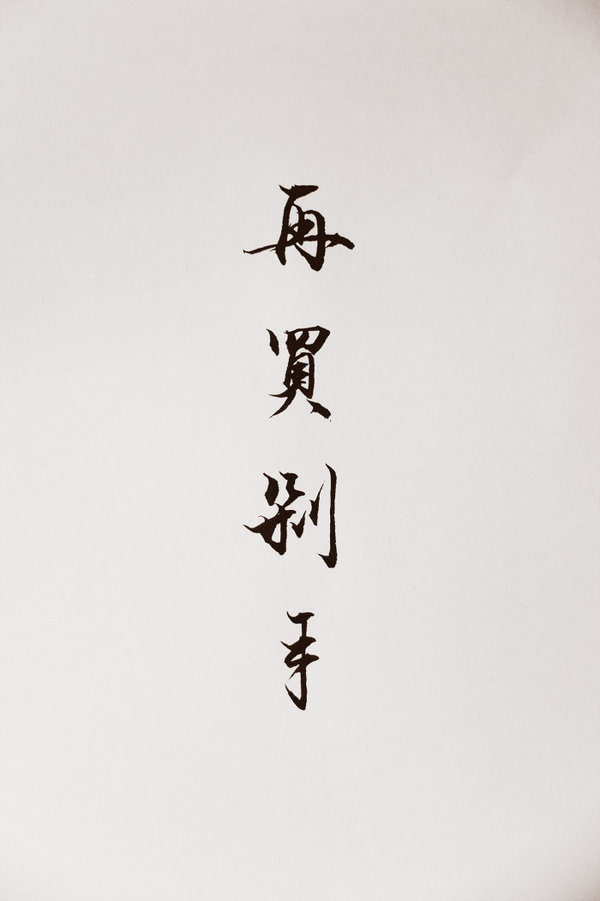 再買剁手